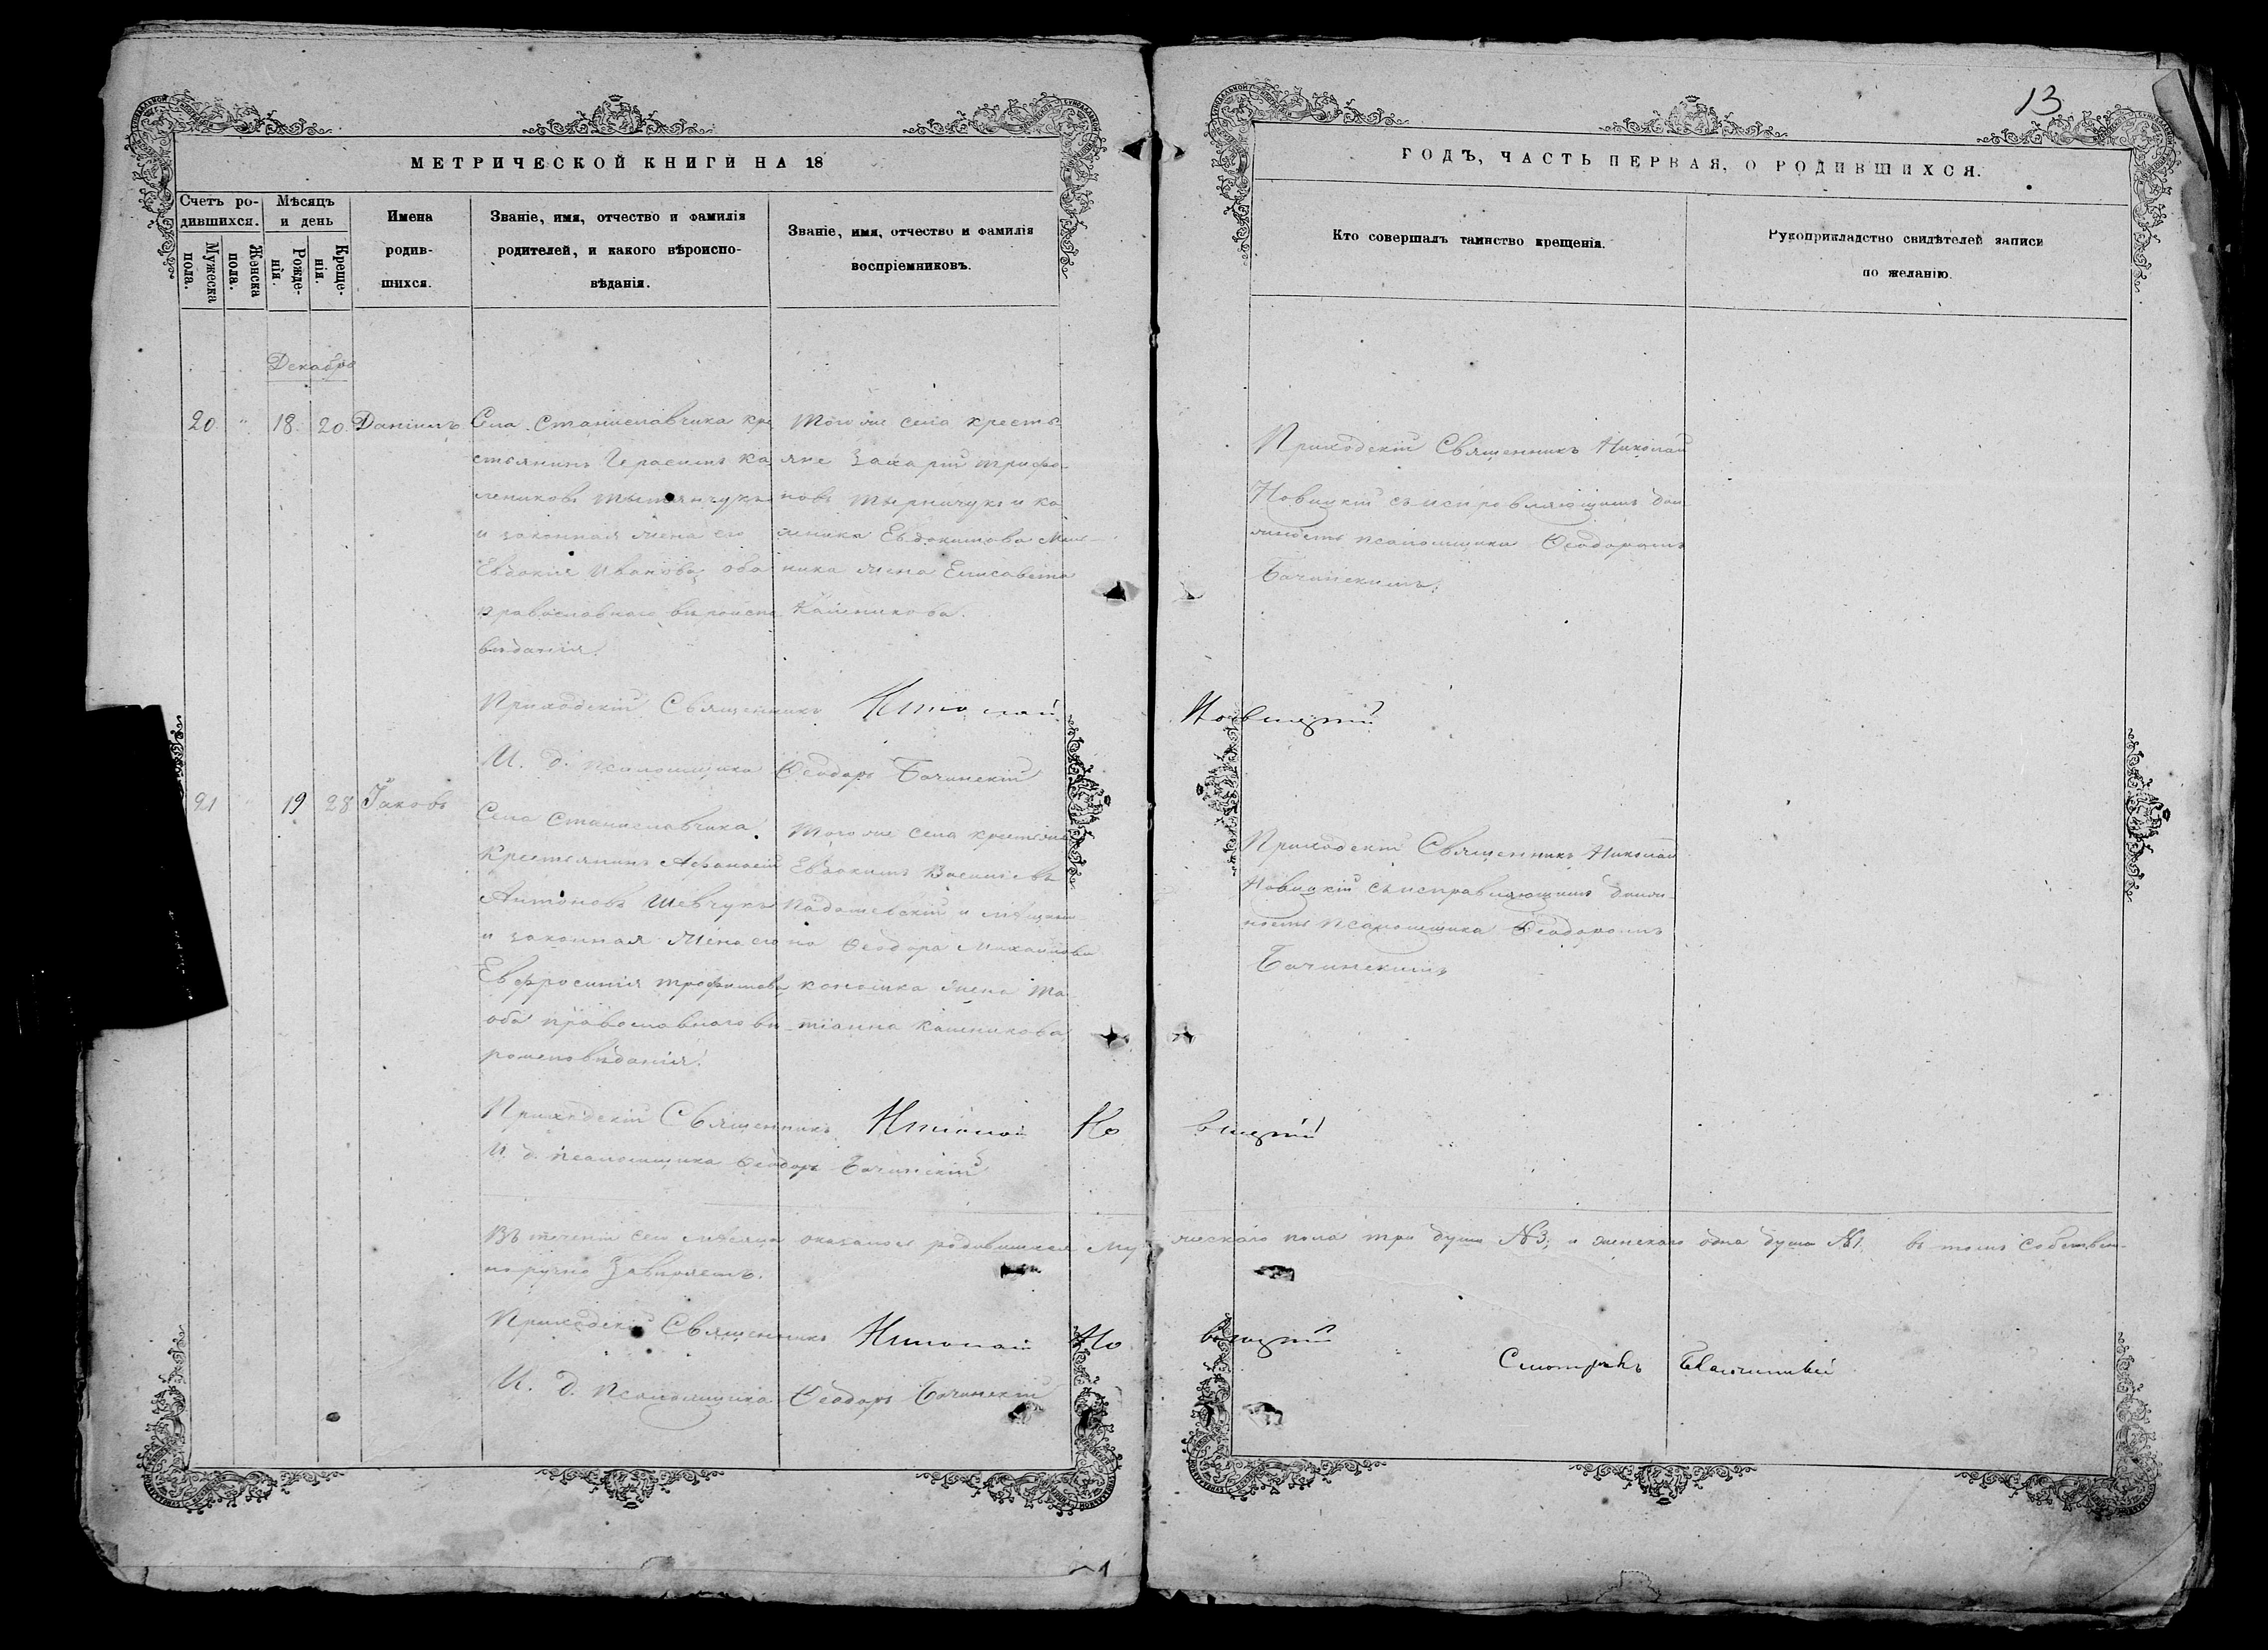 13
МЕТРИЧЕСКОЙ КНИГИ НА 18
ГОДЪ, ЧАСТЬ ПЕРВАЯ, О РОДИВШИХСЯ.
Счетъ ро-
дившихся.
Мужеска
пола.
Женска
пола.
Мѣсяцъ
и день
Рожде-
нія.
Креще-
нія.
Имена
родив-
шихся.
Званіе, имя, отчество и фамилія
родителей, и какого вѣроиспо-
вѣданія.
Званіе, имя, отчество и фамилія
воспріемниковъ.
Кто совершалъ таинство крещенія.
Рукоприкладство свидѣтелей записи
по желанію.
Декабрь
20 " 18. 20. Даніилъ
Села Станиславчика кре
стьянинъ Герасимъ Ка
лениковъ
и законная жена его
Евдокія Иванова, оба
православнаго вѣроиспо
вѣданія.
Того же села крестья
яне Захарій Трифо-
новъ и Ка
Евдокимова
ника жена Елисавета
Каленикова.
Приходскій Священникъ Николай
Новицкій съ исправляющимъ дол
жность псаломщика Ѳеодоромъ
Бачинскимъ.
Приходскій Священникъ Николай Новицкій
И. д. псаломщика Ѳеодоръ Бачинскій
21 " 19 28 Іаковъ
Села Станиславчика
Крестьянинъ Афанасій
Антоновъ Шевчукъ
и законная жена его
Евфросинія Трофимова,
оба православнаго вѣ-
роисповѣданія.
Того же села крестьяне
Евдокимъ Васильевъ
и
на Ѳеодора Михайлова
жена Та-
тіанна Каленикова
Приходскій Священникъ Николай
Новицкій съ исправляющимъ долж-
ность псаломщика Ѳеодоромъ
Бачинскимъ
Приходскій Священникъ Николай Новицкій
И. д. псаломщика Ѳеодоръ Бачинскій
Въ теченіи сего мѣсяца оказалось родившихся мужескаго пола три души №3; и женскаго одна душа №1. въ томъ собствен-
норучно
Приходскій Священникъ Николай Новицкій
И. д. Псаломщика Ѳеодоръ Бачинскій
Смотрѣлъ